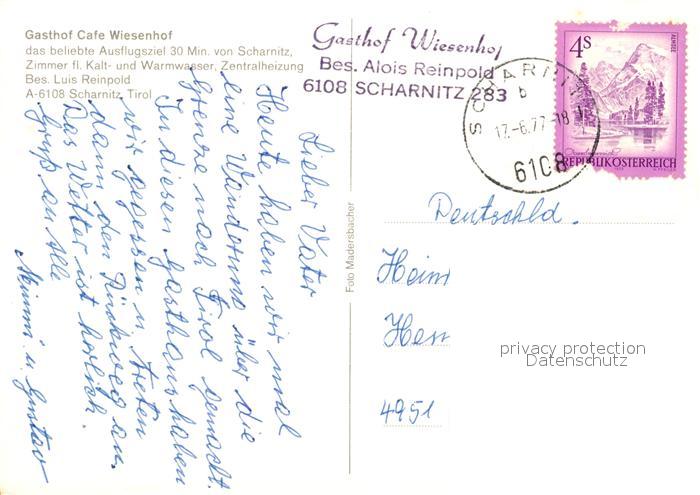 Gasthof Cafe Wiesenhof
das beliebte Ausflugsziel 30 Min. von Scharnitz,
Zimmer fl. Kalt- und Warmwasser, Zentralheizung
Bes. Luis Reinpold
A-6108 Scharnitz, Tirol
Gasthof Wiesenhof
Bes. Alois Reinpold
6108 SCHARNITZ 283
4S
ALMSEE
REPUBLIK ÖSTERREICH
SCHARNITZ
b
17.-6.77-18
6108
Lieber Vater
Heute haben wir mal
eine Wanderung über die
Grenze nach Tirol gemacht.
In diesen Gasthaus haben
wir gegessen u. treten
dann den Rückweg an.
Das Wetter ist herlich.
Gruß an Alle
Mimmi u. Gustav
Foto Madersbacher
Deutschld.
Heim
Herr
4951
privacy protection
Datenschutz